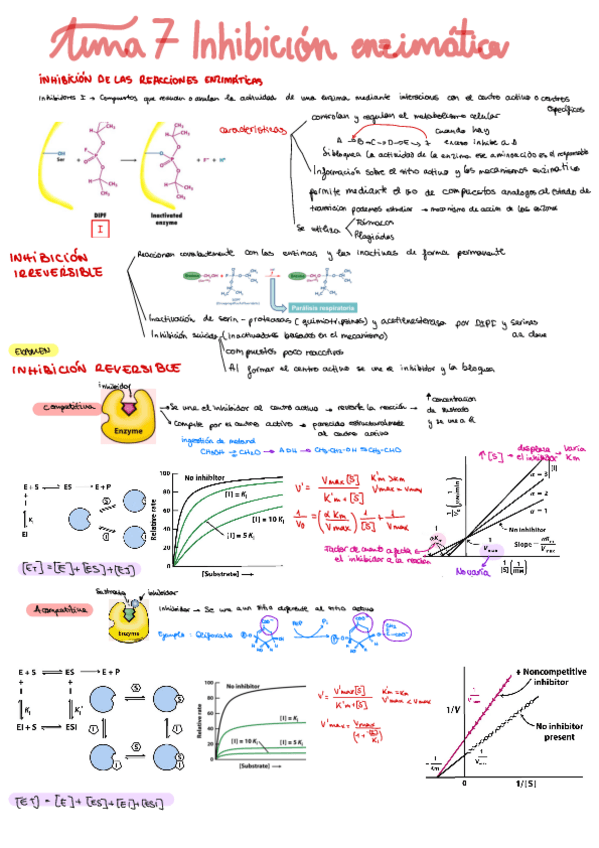 tema 7 Inhibición enzimática
INHIBICIÓN DE LAS REACCIONES ENZIMÁTICAS
Inhibidores I → Compuestos que reducen o anulan la actividad de una enzima mediante interacciones con el centro activo o centros específicos
características
controlan y regulan el metabolismo celular
A → B → C → D → E → Z
cuando hay exceso inhibe a B
Si bloquea la actividad de la enzima ese aminoácido es el responsable
Información sobre el sitio activo y los mecanismos enzimáticos
permite mediante el uso de compuestos analogos al estado de
transición podemos estudiar → mecanismo de accion de las enzimas
Se utiliza
Fármacos
Plagicidas
Ser
DIPF
Inactivated enzyme
I
INHIBICIÓN IRREVERSIBLE
Reaccionan covalentemente con las enzimas y las inactivas de forma permanente
Parálisis respiratoria
Inactivación de serin-proteasas (quimiotripsinas) y acetilenesterasa por DIPF y serinas
Inhibición suicida (Inactivadores basados en el mecanismo)
compuestos poco reactivos
Al formar el centro activo se une el inhibidor y la bloquea
EXAMEN
INHIBICIÓN REVERSIBLE
Competitiva
inhibidor
Enzyme
→ Se une el inhibidor al centro activo → revierte la reacción → ↑ concentracion de sustrato y se une a él
→ Compite por el centro activo → parecido estructuralmente al centro activo
ingestión de metanol
CH3OH → CH2O → ADH → CH3-CH2-OH ⇌ CH3-CHO
E + S ⇌ ES → E + P
+
I
KI
EI
[ET] = [E] + [ES] + [EI]
Relative rate
100
80
60
40
20
0
No inhibitor
[I] = KI
[I] = 10 KI
[I] = 5 KI
[Substrate] →
V' = Vmax[S] / K'm + [S]
K'm > Km
Vmax = Vmax
1/V0 = (α Km / Vmax) 1/[S] + 1/Vmax
Factor de cuanto afecta el inhibidor a la reacción
↑[S] → desplaza el inhibidor → Varia Km
[I]
α = 3
α = 2
α = 1
No inhibitor
Slope = αKm / Vmax
1/Vmax
No varía
Acompetitiva
Sustrato
inhibidor
Enzyme
Inhibidor → Se une a un sitio diferente al sitio activo
Ejemplo: Glifosato
PEP
Pi
E + S ⇌ ES → E + P
+ +
I I
KI KI'
EI + S ⇌ ESI
S
I
[ET] = [E] + [ES] + [EI] + [ESI]
Relative rate
100
80
60
40
20
0
No inhibitor
[I] = KI
[I] = 10 KI
[I] = 5 KI
[Substrate] →
V' = V'max[S] / K'm + [S]
Km = Km
V'max < Vmax
V'max = Vmax / (1 + [I]/KI)
1/V
+ Noncompetitive inhibitor
No inhibitor present
0
1/[S]